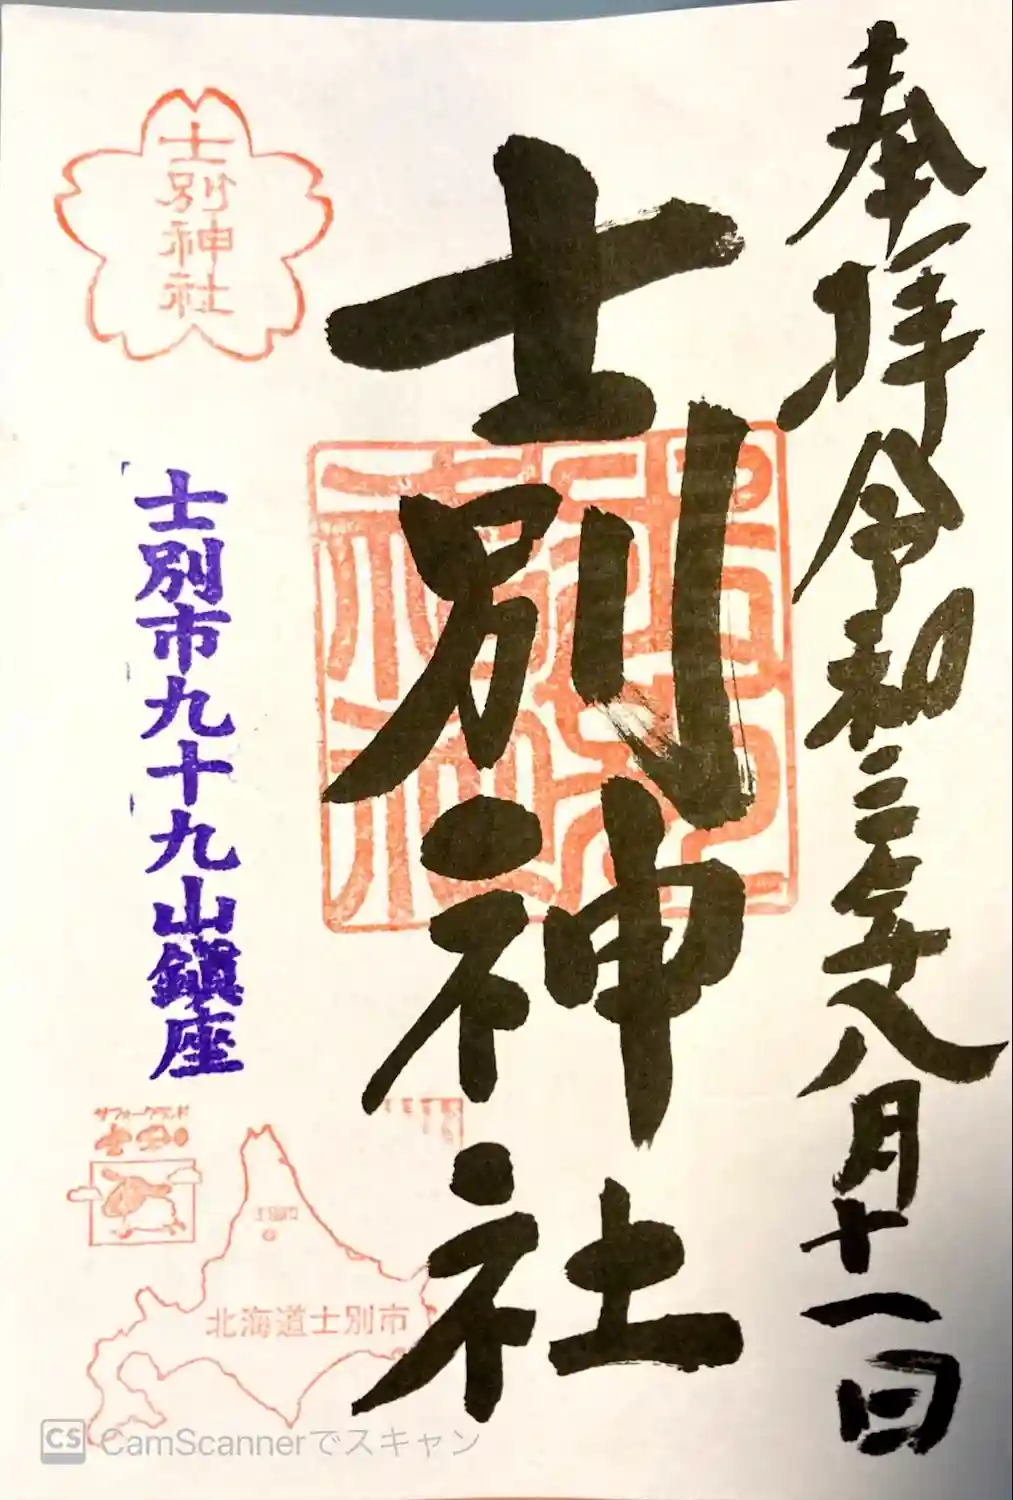 奉拝令和三年八月十一日
士別神社
士別神社
士別市九十九山鎮座
サフォークランド
士別
北海道士別市
CS CamScannerでスキャン